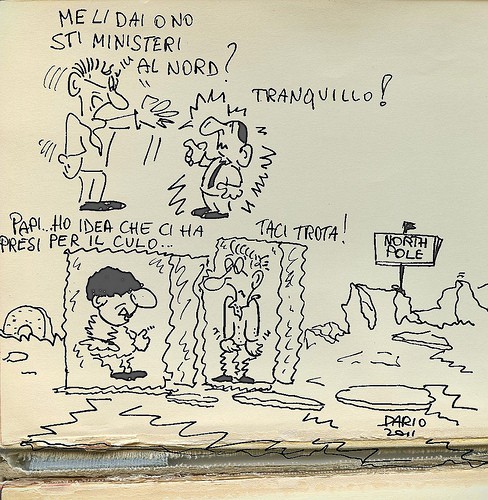 ME LI DAI O NO
STI MINISTERI
AL NORD?
TRANQUILLO!
PAPI...HO IDEA CHE CI HA
PRESI PER IL CULO...
TACI TROTA!
NORTH
POLE
DARIO
2011